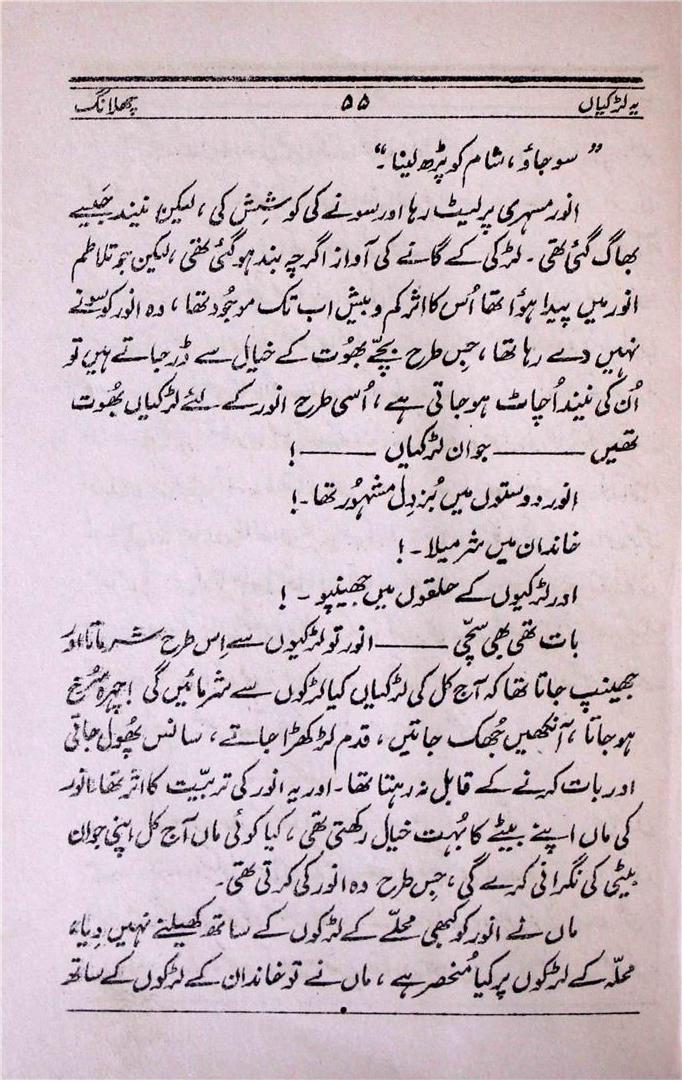 یہ لڑکیاں ۵۵ پھلانگ
”سو جاؤ، شام کو پڑھ لینا۔“
انور مسہری پر لیٹ رہا اور سونے کی کوشِش کی، لیکن نیند جَیسے
بھاگ گئی تھی۔ لڑکی کے گانے کی آواز اگرچہ بند ہو گئی تھی، لیکن جو تلاطم
انور میں پیدا ہوُا تھا اُس کا اثر کم و بیش اب تک موجُود تھا، وہ انور کو سونے
نہیں دے رہا تھا، جِس طرح بچّے بھُوت کے خیال سے ڈر جاتے ہیں تو
اُن کی نیند اُچاٹ ہو جاتی ہے، اُسی طرح انور کے لئے لڑکیاں بھُوت
تھیں ——— جوان لڑکیاں ——— !
انور دوستوں میں بُزدِل مشہُور تھا۔!
خاندان میں شرمیلا۔!
اور لڑکیوں کے حلقوں میں جھینپو۔ !
بات تھی بھی سچّی ——— انور تو لڑکیوں سے اِس طرح شرماتا اور
جھینپ جاتا تھا کہ آج کل کی لڑکیاں کیا لڑکوں سے شرمائیں گی! چہرہ سُرخ
ہو جاتا، آنکھیں جُھک جاتیں، قدم لڑکھڑا جاتے، سانس پھُول جاتی
اور بات کرنے کے قابل نہ رہتا تھا۔ اور یہ انور کی تربیّت کا اثر تھا، انور
کی ماں اپنے بیٹے کا بہُت خیال رکھتی تھی، کیا کوئی ماں آج کل اپنی جوان
بیٹی کی نگرانی کرے گی، جِس طرح وہ انور کی کرتی تھی۔
ماں نے انور کو کبھی محلّے کے لڑکوں کے ساتھ کھیلنے نہیں دِیا،
محلّہ کے لڑکوں پر کیا مُنحصر ہے، ماں نے تو خاندان کے لڑکوں کے ساتھ